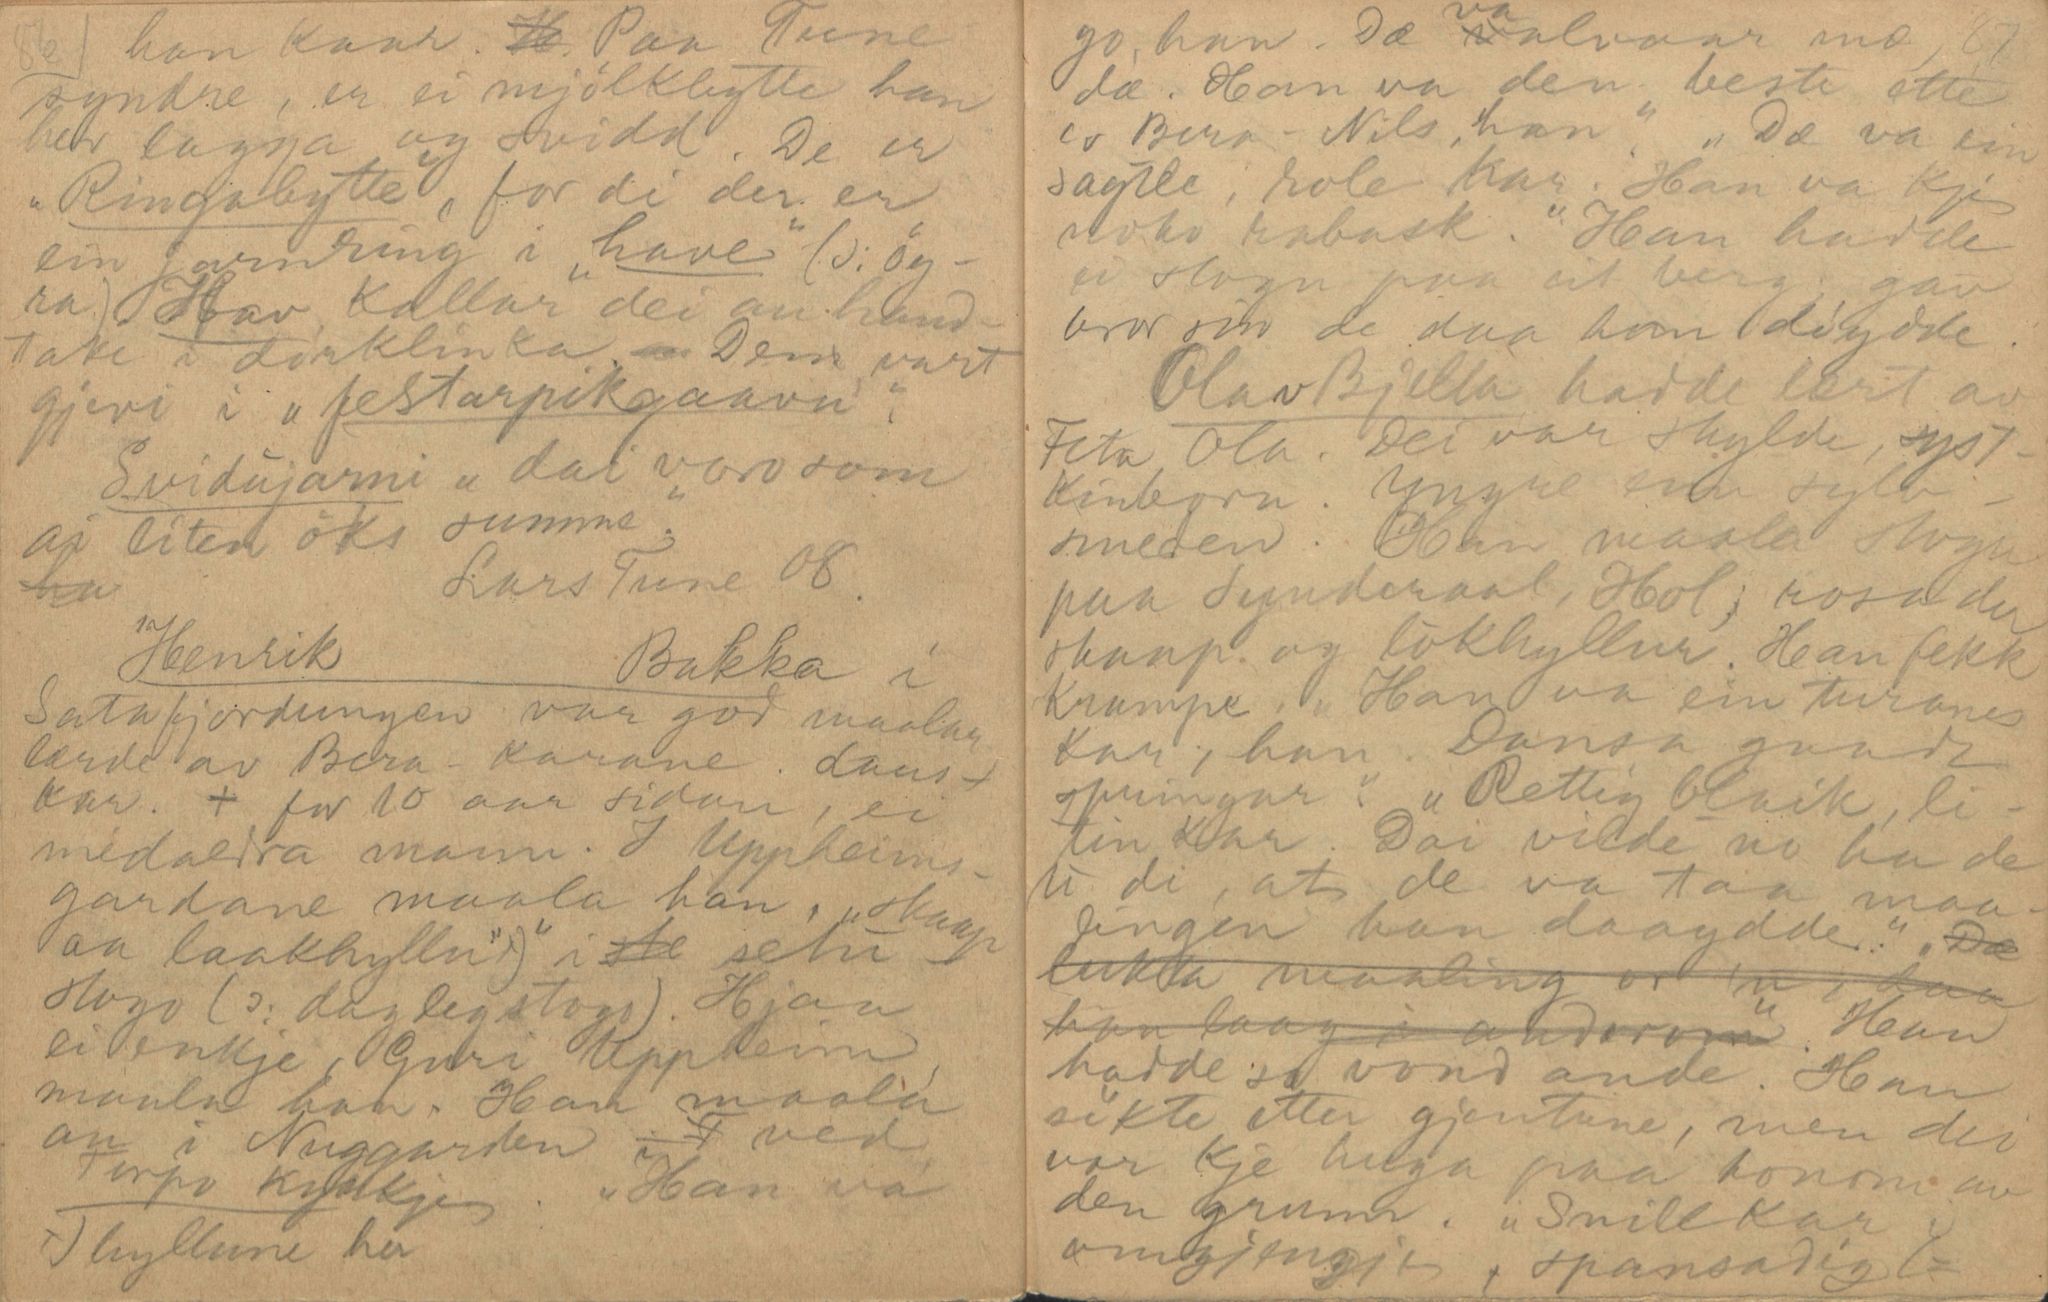 86) han kaar. H. Paa Tune
syndre, er ei mjölkbytte han
hev lagga og svidd. De er
"Ringabytte", for di der er
ein jarnring i "have" (ɔ: öy-
ra). Hav kallar dei au hand-
take i dörklinka. Den vart
gjevi i "festarpikgaavu".
Svidüjarni "dai voro som
ai liten öks summe".
ha Lars Tune 08.
Henrik Bakka i
Satafjordungen var god maalar
lærde av Bera-karane. Laus-
kar. + for 10 aar sidan, ei
medaldra mann. I Uppheims-
gardane maala han, "skaap
aa laakhyllu"+)" i ste selü
stogo (ɔ: daglegstogo). Hjaa
ei enkje, Guri Uppheim,
maala han. Han maala
au i Nuggarden i T ved
Torpo kyrkje. "Han va
+) hyllune her
87
go, han. Dæ va alvaar mæ
dæ. Han va den beste ette
es Bera-Nils, han". "Dæ va ein
sagtle, role kar. Han va kje
noko rabask." Han hadde
ei stogu paa eit berg, gav
bror sin de daa han döydde.
Olav Bjella hadde lært av
Feta Ola. Dei var skylde, syst-
kinborn. Yngre enn sylv-
smeden. Han maala stogu
paa Synderaal, Hol; rosa der
skaap og lokhyllur. Han fekk
krampe. "Han va ein turanes
kar, han. Dansa gaadt
springar". "Rettig blaik, li-
tin kar. Dai vilde no ha de
ti di, at de va taa maa-
lingen han daaydde." "Dæ
lukta maaling or 'n, daa
han laag i andorom". Han
hadde so vond ande. Han
sökte etter gjentune, men dei
var kje huga paa honom av
den grunn. "Snill kar i
omgjengje, spansadig (=